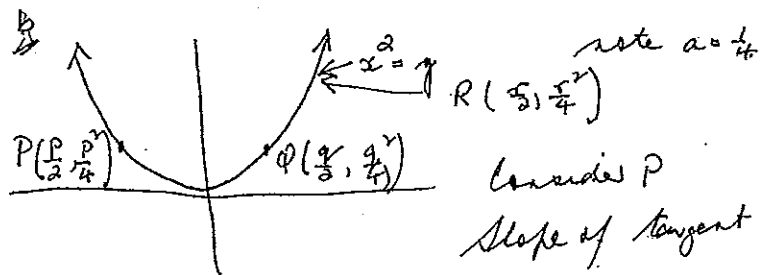 x² = y
note a = 1/4
R(r/2, r²/4)
P(p/2, p²/4)
Q(q/2, q²/4)
Consider P
Slope of tangent